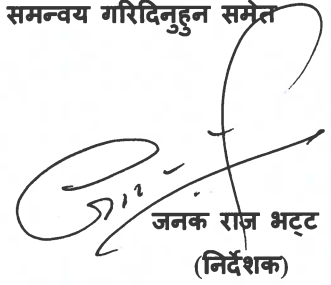 समन्वय गरिदिनुहुन समेत
जनक राज भट्ट
(निर्देशक)